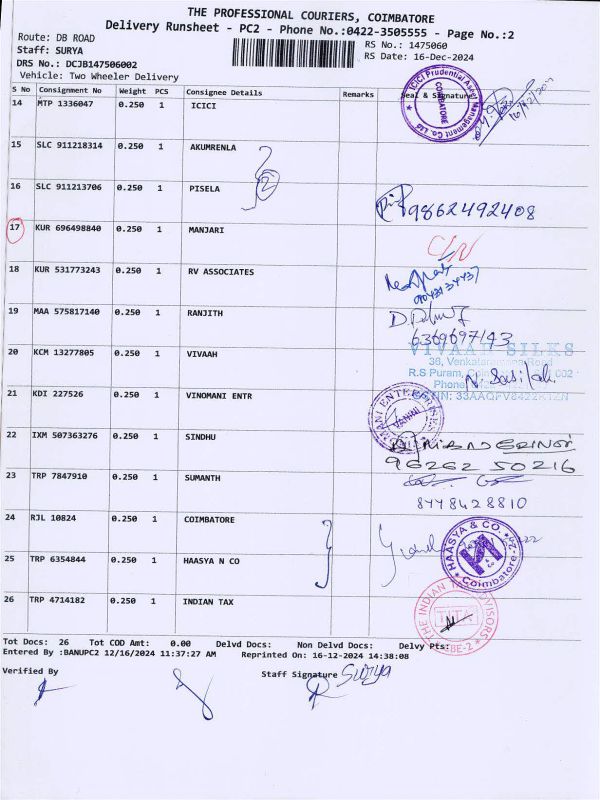 THE PROFESSIONAL COURIERS, COIMBATORE
Delivery Runsheet - PC2 - Phone No.:0422-3505555 - Page No.:2
Route: DB ROAD
Staff: SURYA
DRS No.: DCJB147506002
Vehicle: Two Wheeler Delivery
RS No.: 1475060
RS Date: 16-Dec-2024
S No Consignment No Weight PCS Consignee Details Remarks Seal & Signature
14 MTP 1336047 0.250 1 ICICI
ICICI Prudential Asset Management Co. Ltd
COIMBATORE
15 SLC 911218314 0.250 1 AKUMRENLA
16 SLC 911213706 0.250 1 PISELA
2
9862492408
17 KUR 696498840 0.250 1 MANJARI
18 KUR 531773243 0.250 1 RV ASSOCIATES
19 MAA 575817140 0.250 1 RANJITH
6369697143
20 KCM 13277805 0.250 1 VIVAAH
VIVAAH SILKS
36, Venkataramana Road
R.S Puram, 002
Phone
21 KDI 227526 0.250 1 VINOMANI ENTR
22 IXM 507363276 0.250 1 SINDHU
96262 50216
23 TRP 7847910 0.250 1 SUMANTH
8778428810
24 RJL 10824 0.250 1 COIMBATORE
25 TRP 6354844 0.250 1 HAASYA N CO
HAASYA & CO.
Coimbatore-2
26 TRP 4714182 0.250 1 INDIAN TAX
THE INDIAN ADVISORS
TITA
CBE-2
Tot Docs: 26 Tot COD Amt: 0.00 Delvd Docs: Non Delvd Docs: Delvy Pts:
Entered By :BANUPC2 12/16/2024 11:37:27 AM Reprinted On: 16-12-2024 14:38:08
Verified By
Staff Signature Surya